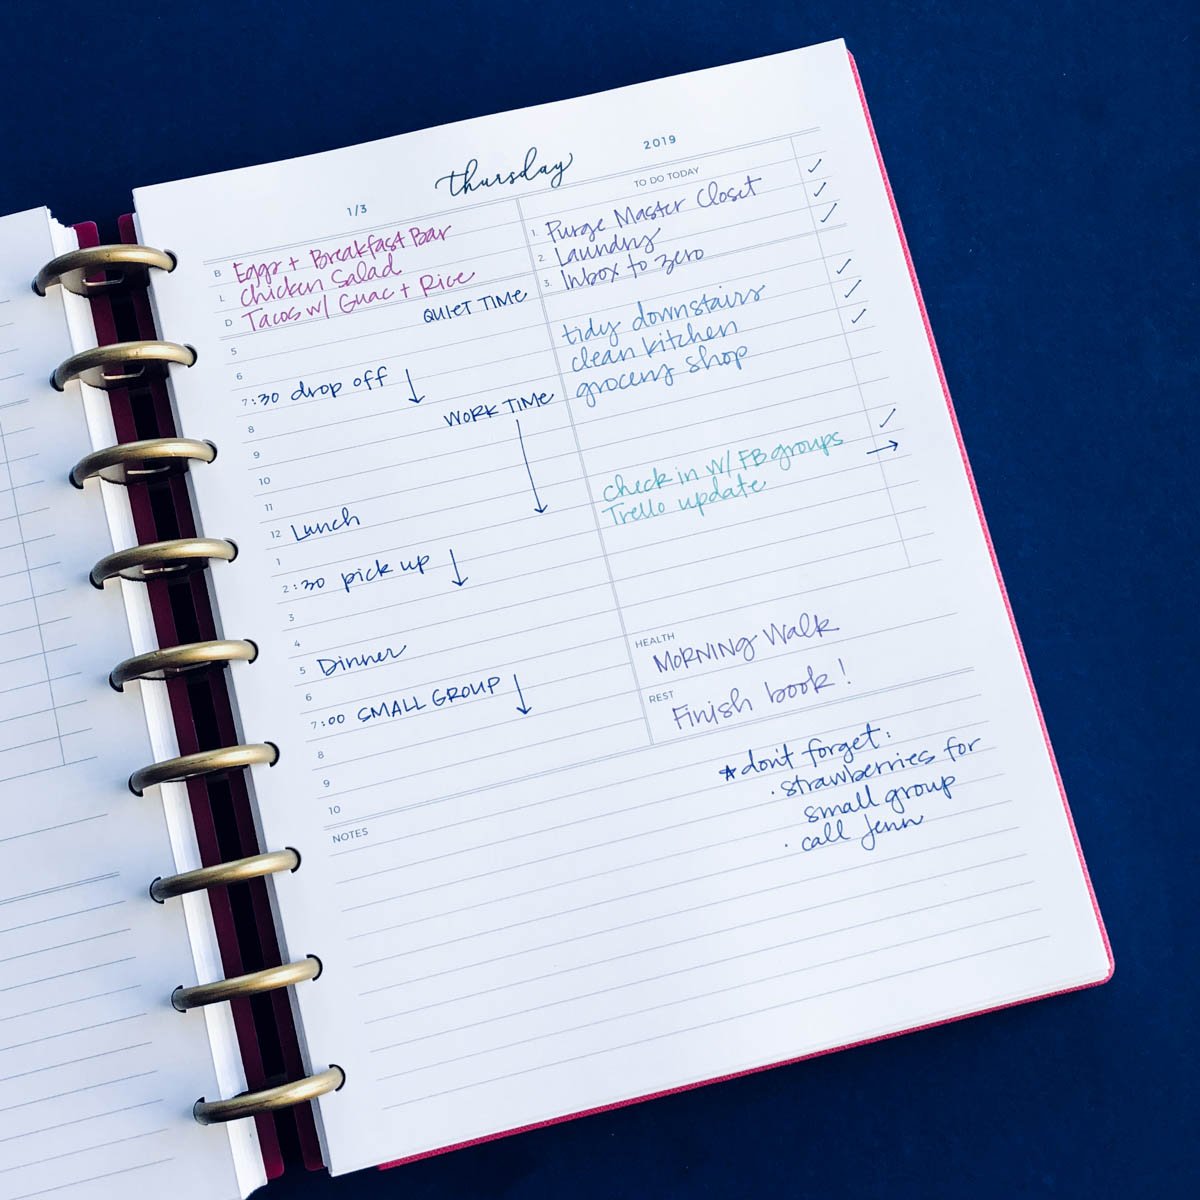 thursday
1/3
2019
B Eggs + Breakfast Bar
L Chicken Salad
D Tacos w/ Guac + Rice
QUIET TIME
5
6
7:30 drop off ↓
WORK TIME
8
9
10
11
12 Lunch
1
2:30 pick up ↓
3
4
5 Dinner
6
7:00 SMALL GROUP ↓
8
9
10
TO DO TODAY
1. Purge Master Closet ✓
2. Laundry ✓
3. Inbox to zero ✓
tidy downstairs ✓
clean kitchen ✓
grocery shop ✓
check in w/ FB groups ✓
Trello update →
HEALTH
MORNING Walk
REST
Finish book!
NOTES
★ don't forget:
· strawberries for
small group
· call Jenn